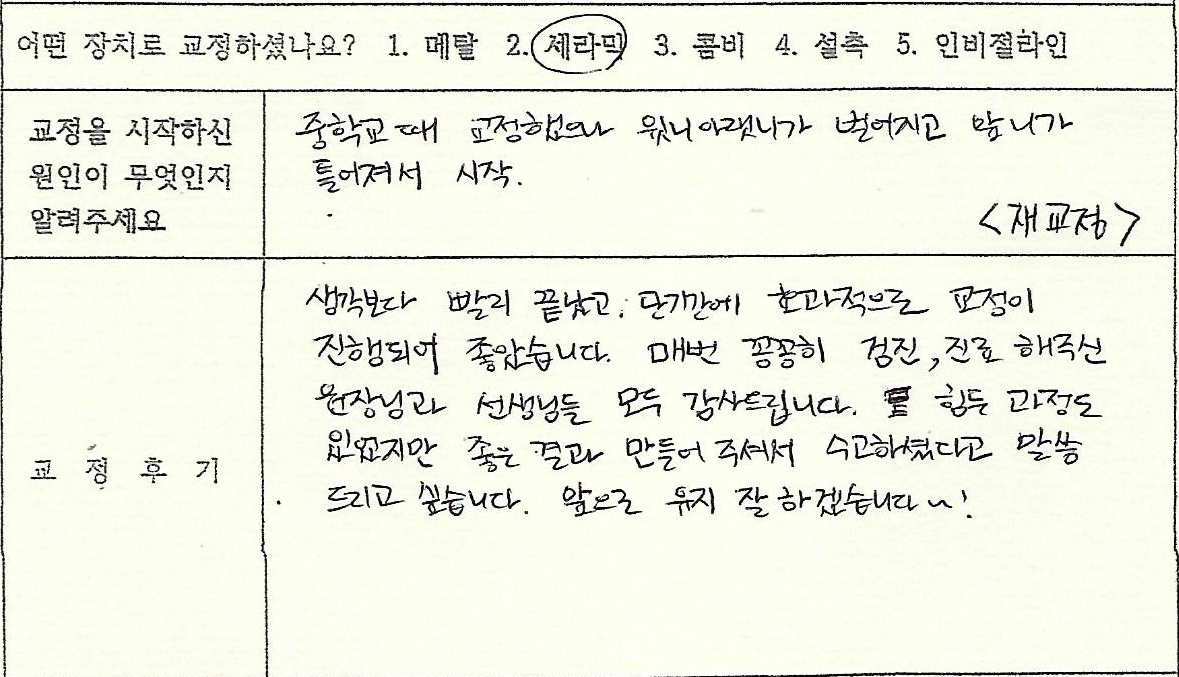 어떤 장치로 교정하셨나요? 1. 메탈 2. 세라믹 3. 콤비 4. 설측 5. 인비절라인
교정을 시작하신
원인이 무엇인지
알려주세요
중학교 때 교정했으나 윗니아랫니가 벌어지고 앞니가
틀어져서 시작.
<재교정>
교 정 후 기
생각보다 빨리 끝났고, 단기간에 효과적으로 교정이
진행되어 좋았습니다. 매번 꼼꼼히 검진, 진료 해주신
원장님과 선생님들 모두 감사드립니다. 힘든 과정도
있었지만 좋은 결과 만들어 주셔서 수고하셨다고 말씀
드리고 싶습니다. 앞으로 유지 잘 하겠습니다~!